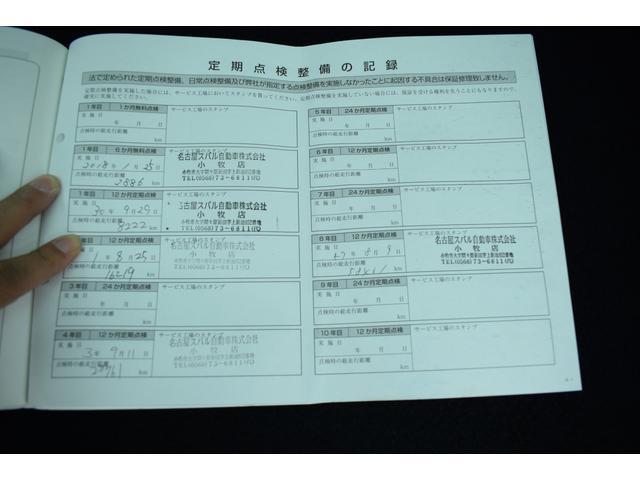 定期点検整備の記録
法で定められた定期点検整備、日常点検整備及び弊社が指定する点検整備を実施しなかったことに起因する不具合は保証修理致しません。
定期点検整備を実施した場合には、サービス工場においてスタンプを貰ってください。定期点検整備を実施していない場合には、保証を受ける権利を失うことにもなりますので、
確実に実施してください。
1年目 1か月無料点検 サービス工場のスタンプ
実施日
年 月 日
点検時の総走行距離
km
1年目 6か月無料点検 サービス工場のスタンプ
実施日
2018年1月25日
点検時の総走行距離
2886 km
名古屋スバル自動車株式会社
小牧店
TEL(0568)73-6811㈹
1年目 12か月定期点検 サービス工場のスタンプ
実施日
30年9月29日
点検時の総走行距離
8222 km
名古屋スバル自動車株式会社
小牧店
TEL(0568)73-6811㈹
年目 12か月定期点検 サービス工場のスタンプ
実施日
1年8月25日
点検時の総走行距離
16219 km
名古屋スバル自動車株式会社
小牧店
TEL(0568)73-6811㈹
3年目 24か月定期点検 サービス工場のスタンプ
実施日
年 月 日
点検時の総走行距離
km
4年目 12か月定期点検 サービス工場のスタンプ
実施日
3年9月11日
点検時の総走行距離
km
名古屋スバル自動車株式会社
小牧店
TEL(0568)73-6811㈹
5年目 24か月定期点検 サービス工場のスタンプ
実施日
年 月 日
点検時の総走行距離
km
6年目 12か月定期点検 サービス工場のスタンプ
実施日
年 月 日
点検時の総走行距離
km
7年目 24か月定期点検 サービス工場のスタンプ
実施日
年 月 日
点検時の総走行距離
km
8年目 12か月定期点検 サービス工場のスタンプ
実施日
年8月9日
点検時の総走行距離
km
名古屋スバル自動車株式会社
小牧店
TEL(0568)73-6811㈹
9年目 24か月定期点検 サービス工場のスタンプ
実施日
年 月 日
点検時の総走行距離
km
10年目 12か月定期点検 サービス工場のスタンプ
実施日
年 月 日
点検時の総走行距離
km